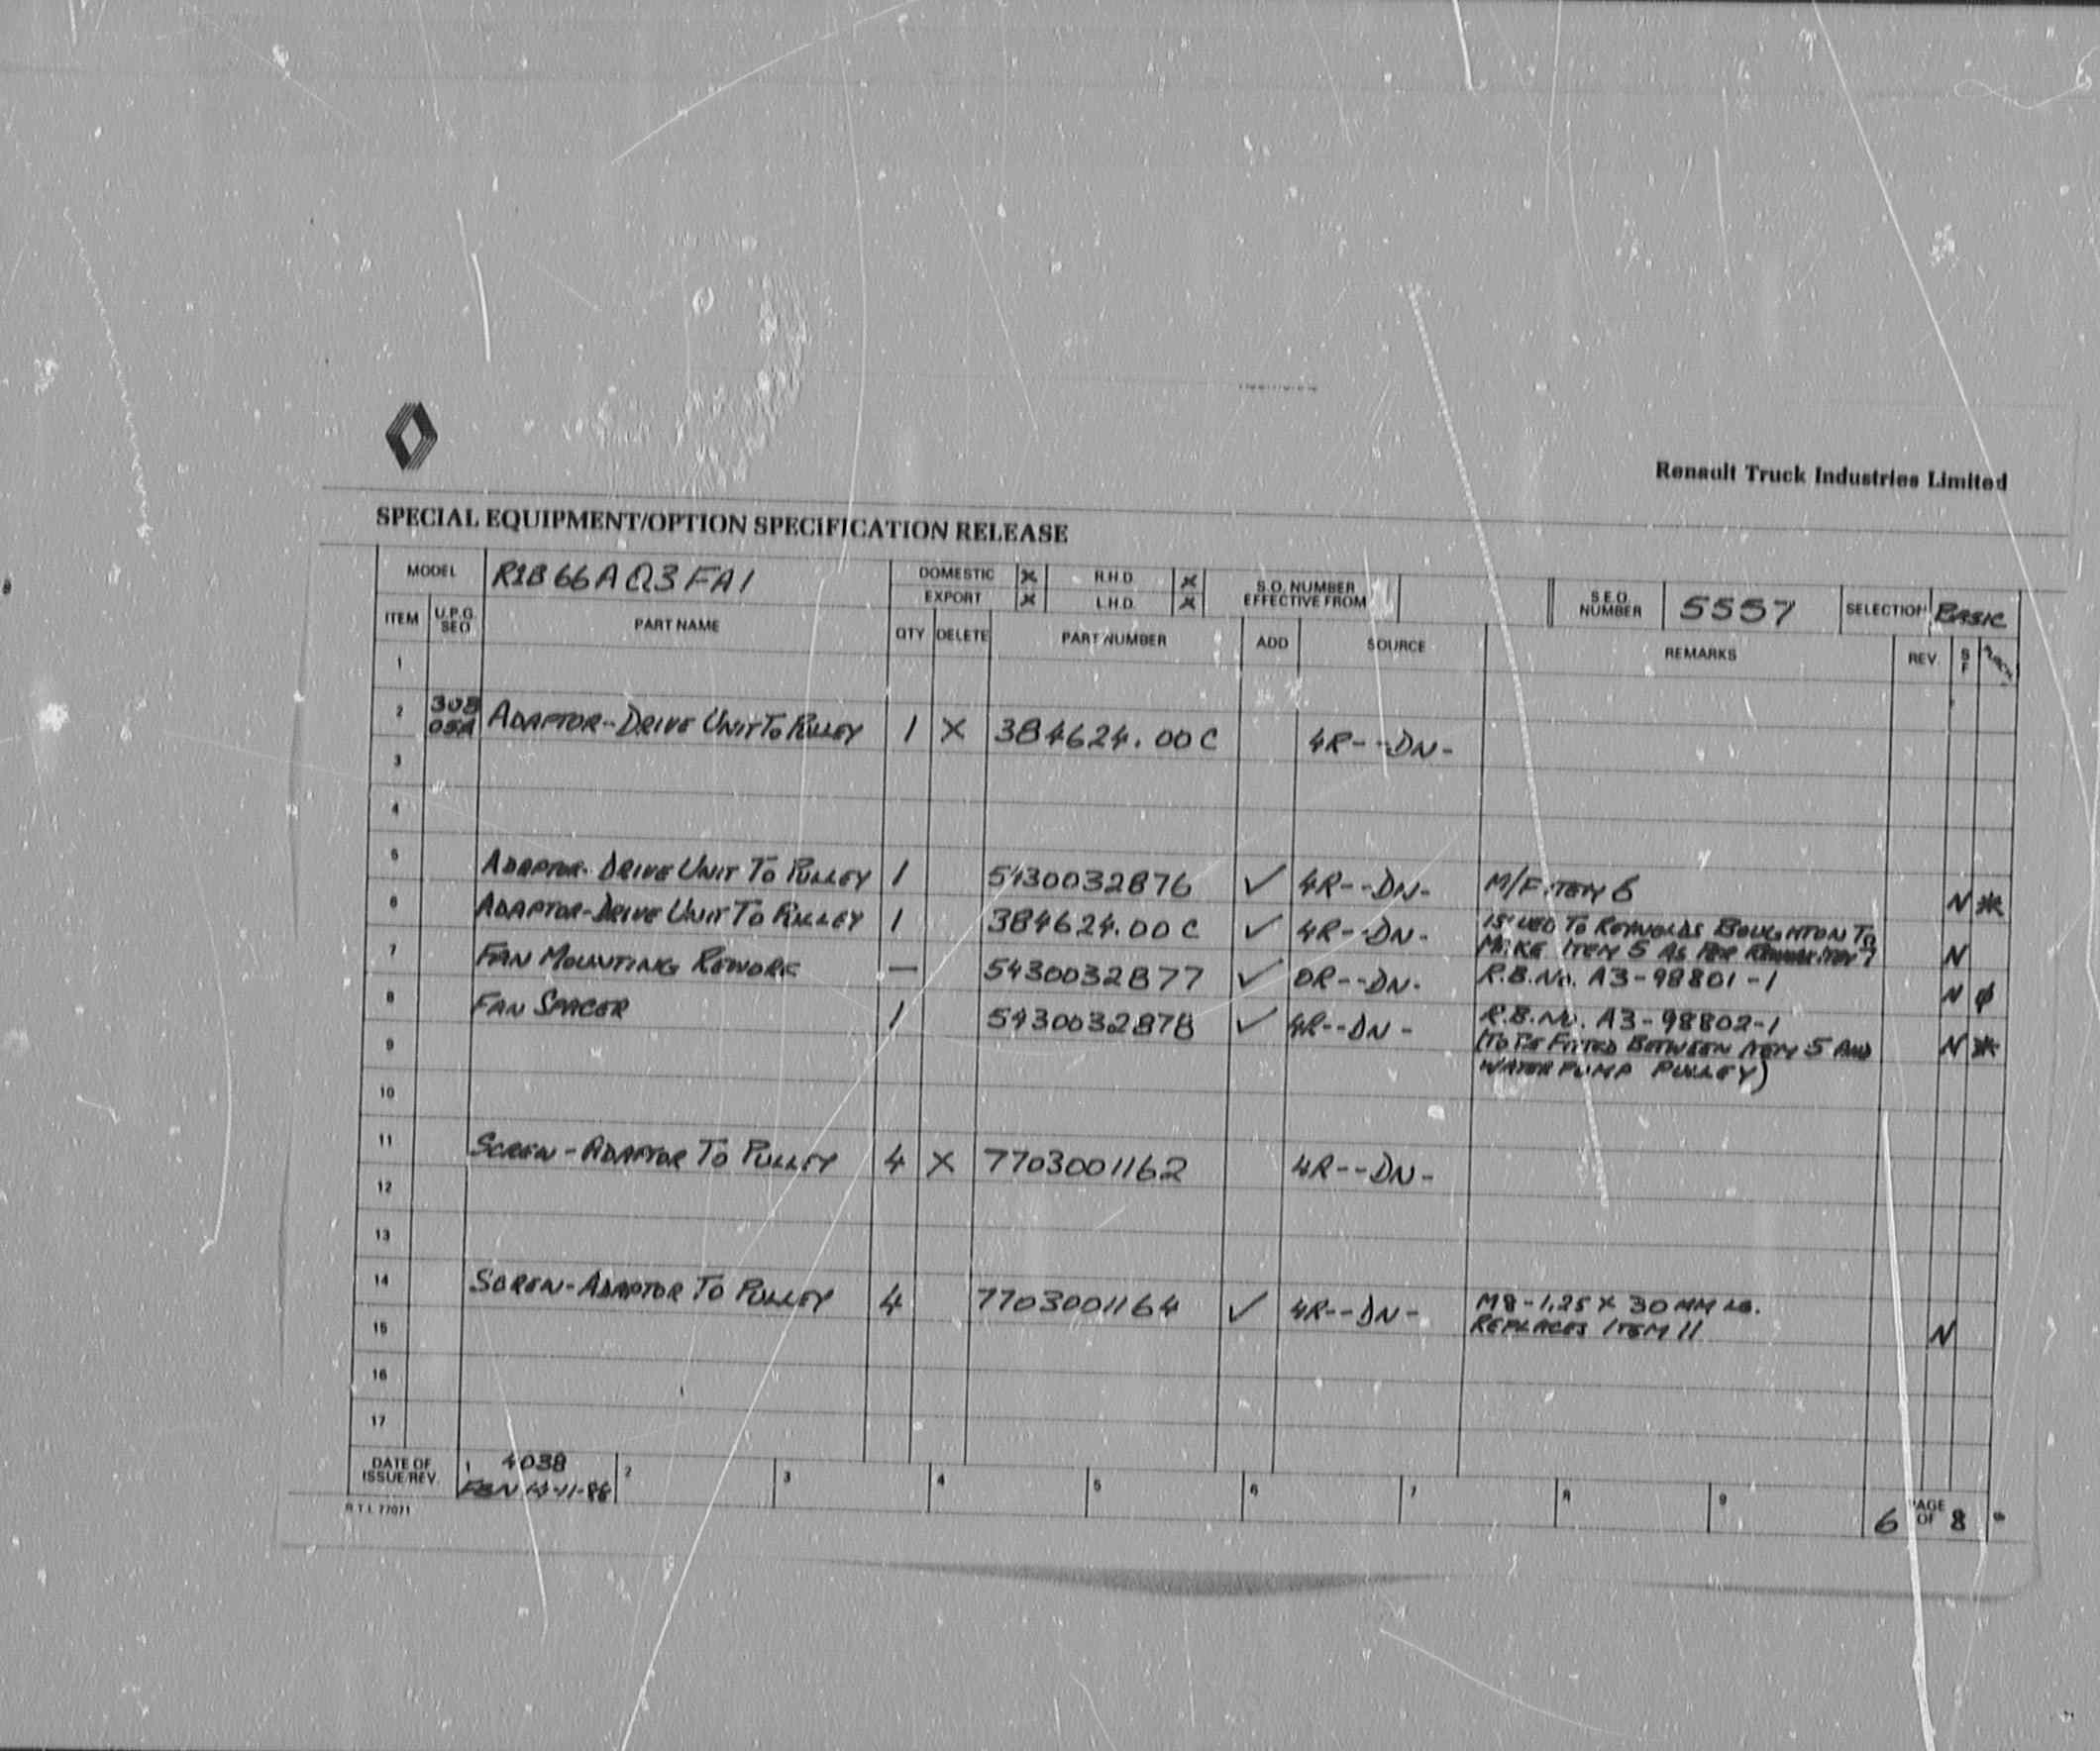 Renault Truck Industries Limited
SPECIAL EQUIPMENT/OPTION SPECIFICATION RELEASE
MODEL R1B66AQ3FA1 DOMESTIC X R.H.D. X S.O. NUMBER EFFECTIVE FROM S.E.O. NUMBER 5557 SELECTION BASIC
EXPORT X L.H.D. X
ITEM U.P.G. SEQ PART NAME QTY DELETE PART NUMBER ADD SOURCE REMARKS REV S F
1
2 30B 05A ADAPTOR-DRIVE UNIT TO PULLEY 1 X 384624.00C 4R--DN-
3
4
5 ADAPTOR-DRIVE UNIT TO PULLEY 1 5430032876 ✓ 4R--DN- M/F ITEM 6 N *
6 ADAPTOR-DRIVE UNIT TO PULLEY 1 384624.00C ✓ 4R--DN- ISSUED TO REYNOLDS BOUGHTON TO
MAKE ITEM 5 AS PER ITEM 7 N
7 FAN MOUNTING REWORK — 5430032877 ✓ 0R--DN- R.B.No. A3-98801-1 N ø
8 FAN SPACER 1 5430032878 ✓ 4R--DN- R.B.No. A3-98802-1
9 (TO BE FITTED BETWEEN ITEM 5 AND N *
WATER PUMP PULLEY)
10
11 SCREW-ADAPTOR TO PULLEY 4 X 7703001162 4R--DN-
12
13
14 SCREW-ADAPTOR TO PULLEY 4 7703001164 ✓ 4R--DN- M8-1.25 X 30MM LG.
15 REPLACES ITEM 11 N
16
17
DATE OF ISSUE/REV. 1 4038 2 3 4 5 6 7 8 9 6 PAGE OF 8
R.T.I. 77071